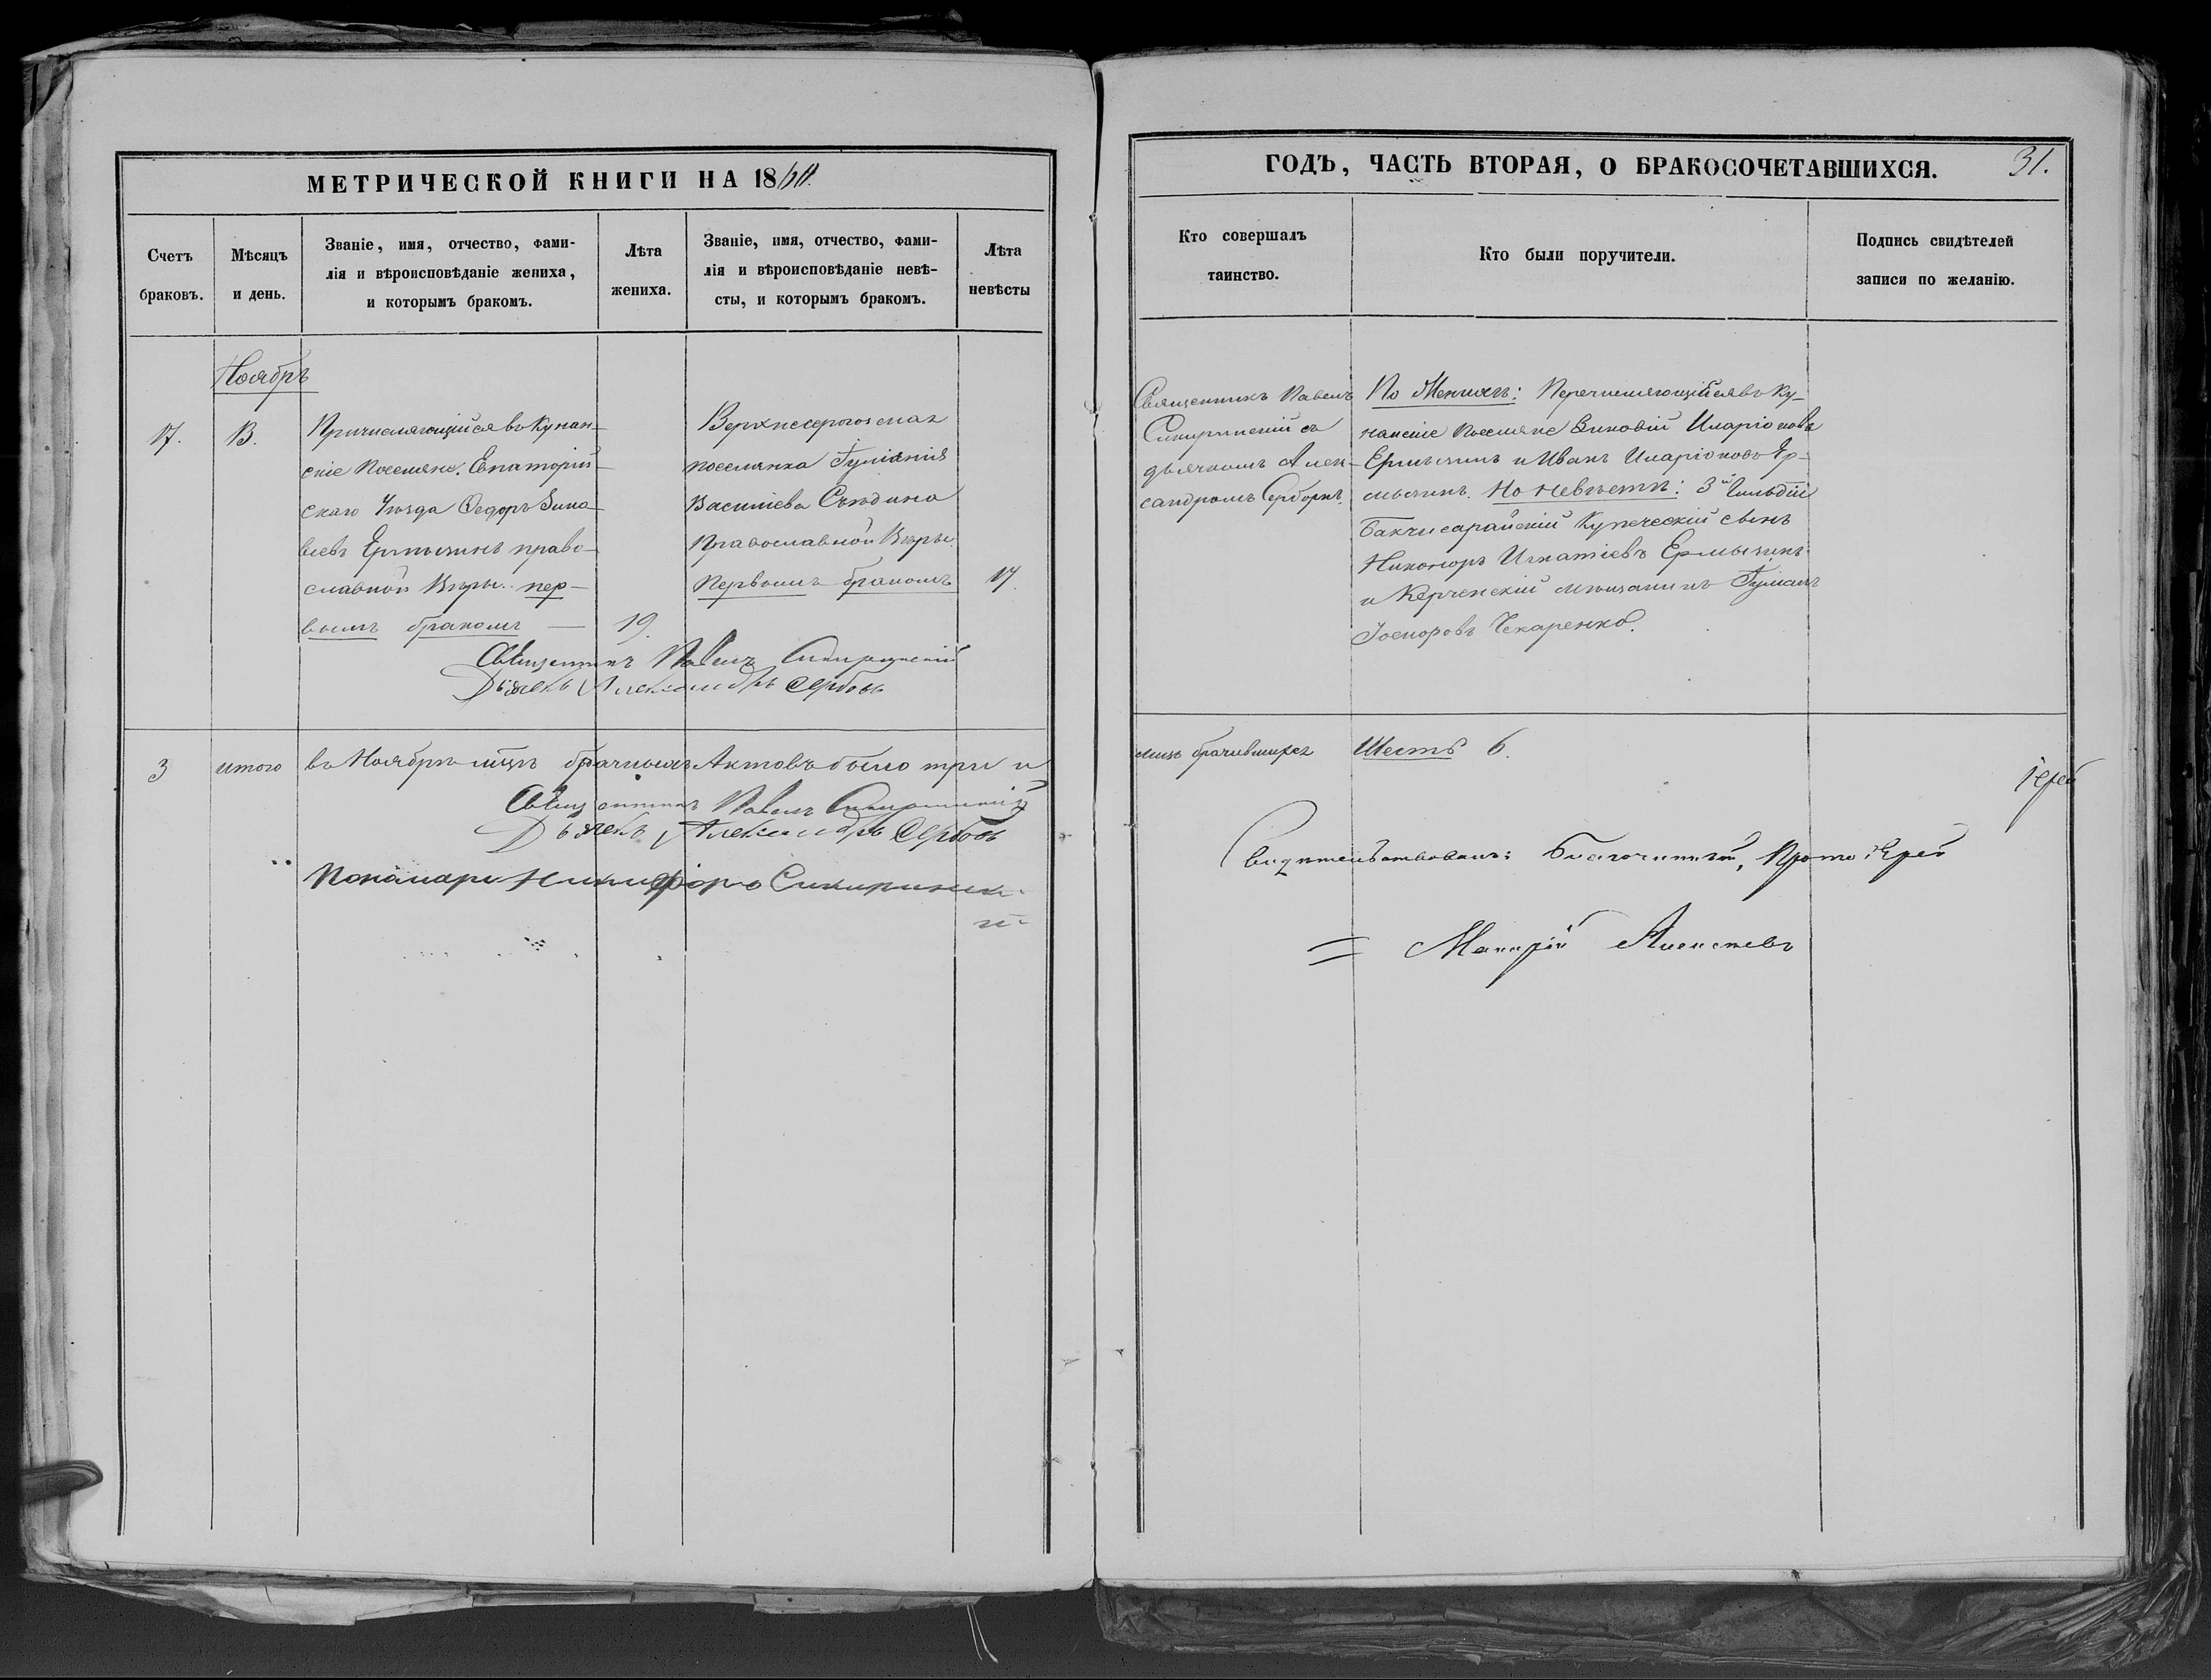 МЕТРИЧЕСКОЙ КНИГИ НА 1860.
Счетъ
браковъ.
Мѣсяцъ
и день.
Званіе, имя, отчество, фами-
лія и вѣроисповѣданіе жениха,
и которымъ бракомъ.
Лѣта
жениха.
Званіе, имя, отчество, фами-
лія и вѣроисповѣданіе невѣ-
сты, и которымъ бракомъ.
Лѣта
невѣсты
Ноябрь
17.
13.
Причисляющійся въ Кунан-
скіе Поселяне. Евпаторій-
скаго Уѣзда Ѳедоръ Зино-
віевъ Ермычинъ право-
славной Вѣры. пер-
вымъ бракомъ —
19.
Верхнесерогозская
поселянка Іуліанія
Василіева Сѣдина
Православной Вѣры.
Первымъ бракомъ
17.
Священникъ Павелъ
Дьячекъ Александръ Сербовъ
3 итого въ Ноябрѣ мцѣ брачныхъ Актовъ было три и
Священникъ Павелъ
Дьячекъ Александръ Сербовъ
Понамарь Никифоръ
ГОДЪ, ЧАСТЬ ВТОРАЯ, О БРАКОСОЧЕТАВШИХСЯ.
31.
Кто совершалъ
таинство.
Кто были поручители.
Подпись свидѣтелей
записи по желанію.
Священникъ Павелъ
съ
дьячкомъ Алек-
сандромъ Сербовъ.
По Женихѣ: Перечисляющійся въ Ку-
нанскіе Поселяне Зиновій Иларіоновъ
Ермычинъ и Иванъ Иларіоновъ Ер-
мычинъ. По невѣстѣ: 3й Гильдіи
Бакчисарайскій Купеческій сынъ
Никоноръ Игнатіевъ Ермычинъ
и Керченскій мѣщанинъ Іуліанъ
Чекаренко.
лицъ брачившихся Шесть 6.
Іерей
Свидѣтельствовалъ: Благочинный, Протоіерей
= Макарій Алексѣевъ